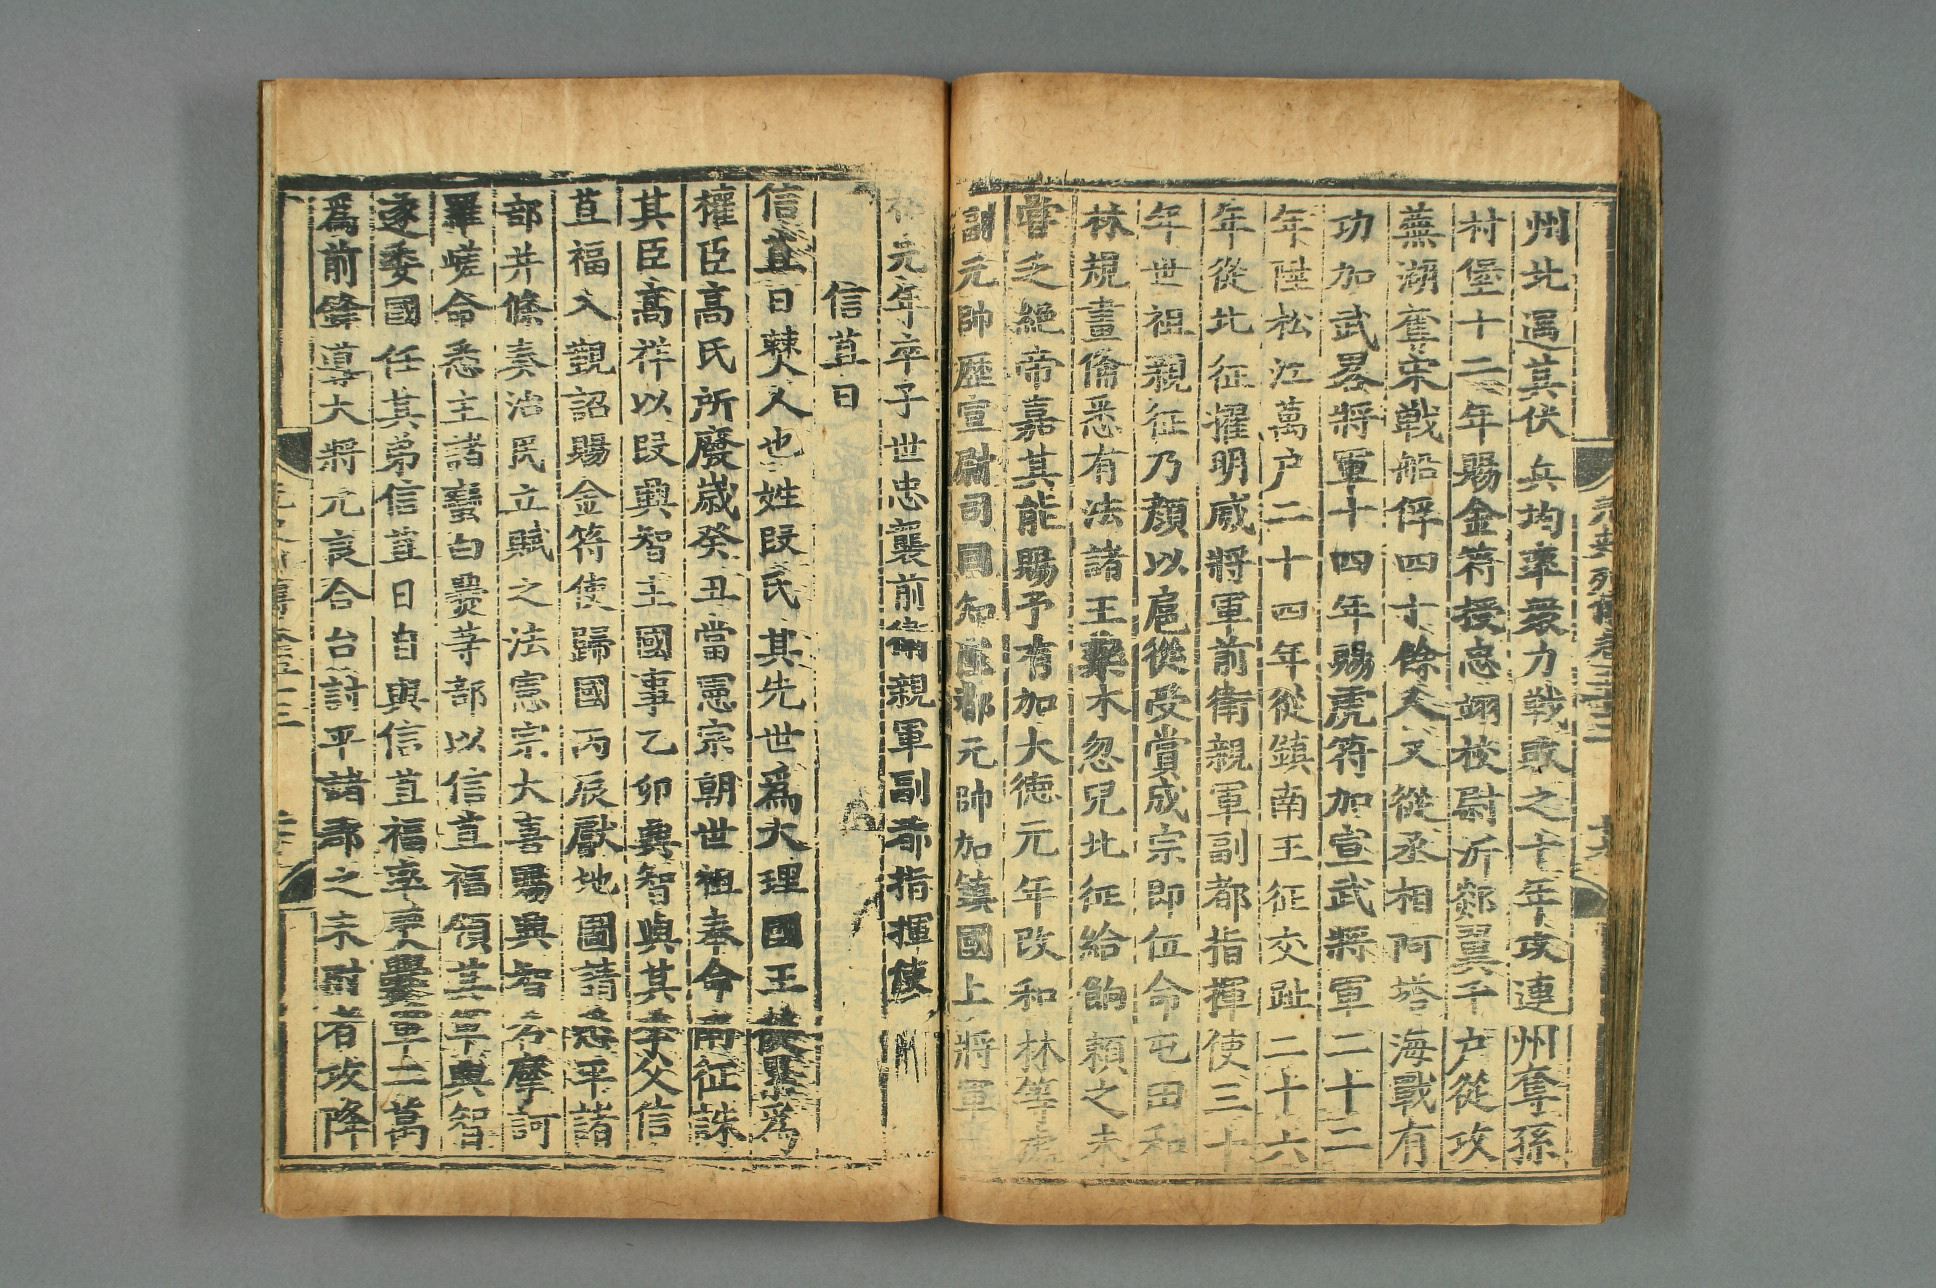 州北遇其伏兵均率衆力戰敗之十年攻連州奪孫
村堡十二年賜金符授忠翊校尉沂郯翼千户從攻
蕪湖奪宋戰船俘四十餘人又從丞相阿塔海戰有
功加武畧將軍十四年賜虎符加宣武將軍二十二
年陞松江萬户二十四年從鎮南王征交趾二十六
年從北征擢明威將軍前衛親軍副都指揮使三十
年世祖親征乃顔以扈從受賞成宗即位命屯田和
林規畫備悉有法諸王藥木忽兒北征給餉賴之未
甞乏絶帝嘉其能賜予有加大德元年改和林等處
副元帥歷宣尉司同知陞都元帥加鎮國上將軍
元年卒子世忠襲前衛親軍副都指揮使
信苴日
信苴日僰人也姓段氏其先世爲大理國王後累爲
權臣高氏所廢歲癸丑當憲宗朝世祖奉命南征誅
其臣高祥以段興智主國事乙卯興智與其季父信
苴福入覲詔賜金符使歸國丙辰獻地圖請悉平諸
部并條奏治民立賦之法憲宗大喜賜興智名摩訶
羅嵯命悉主諸蠻白爨等部以信苴福領其軍興智
遂委國任其弟信苴日自與信苴福率僰爨軍二萬
爲前鋒導大將兀良合台討平諸郡之未附者攻降